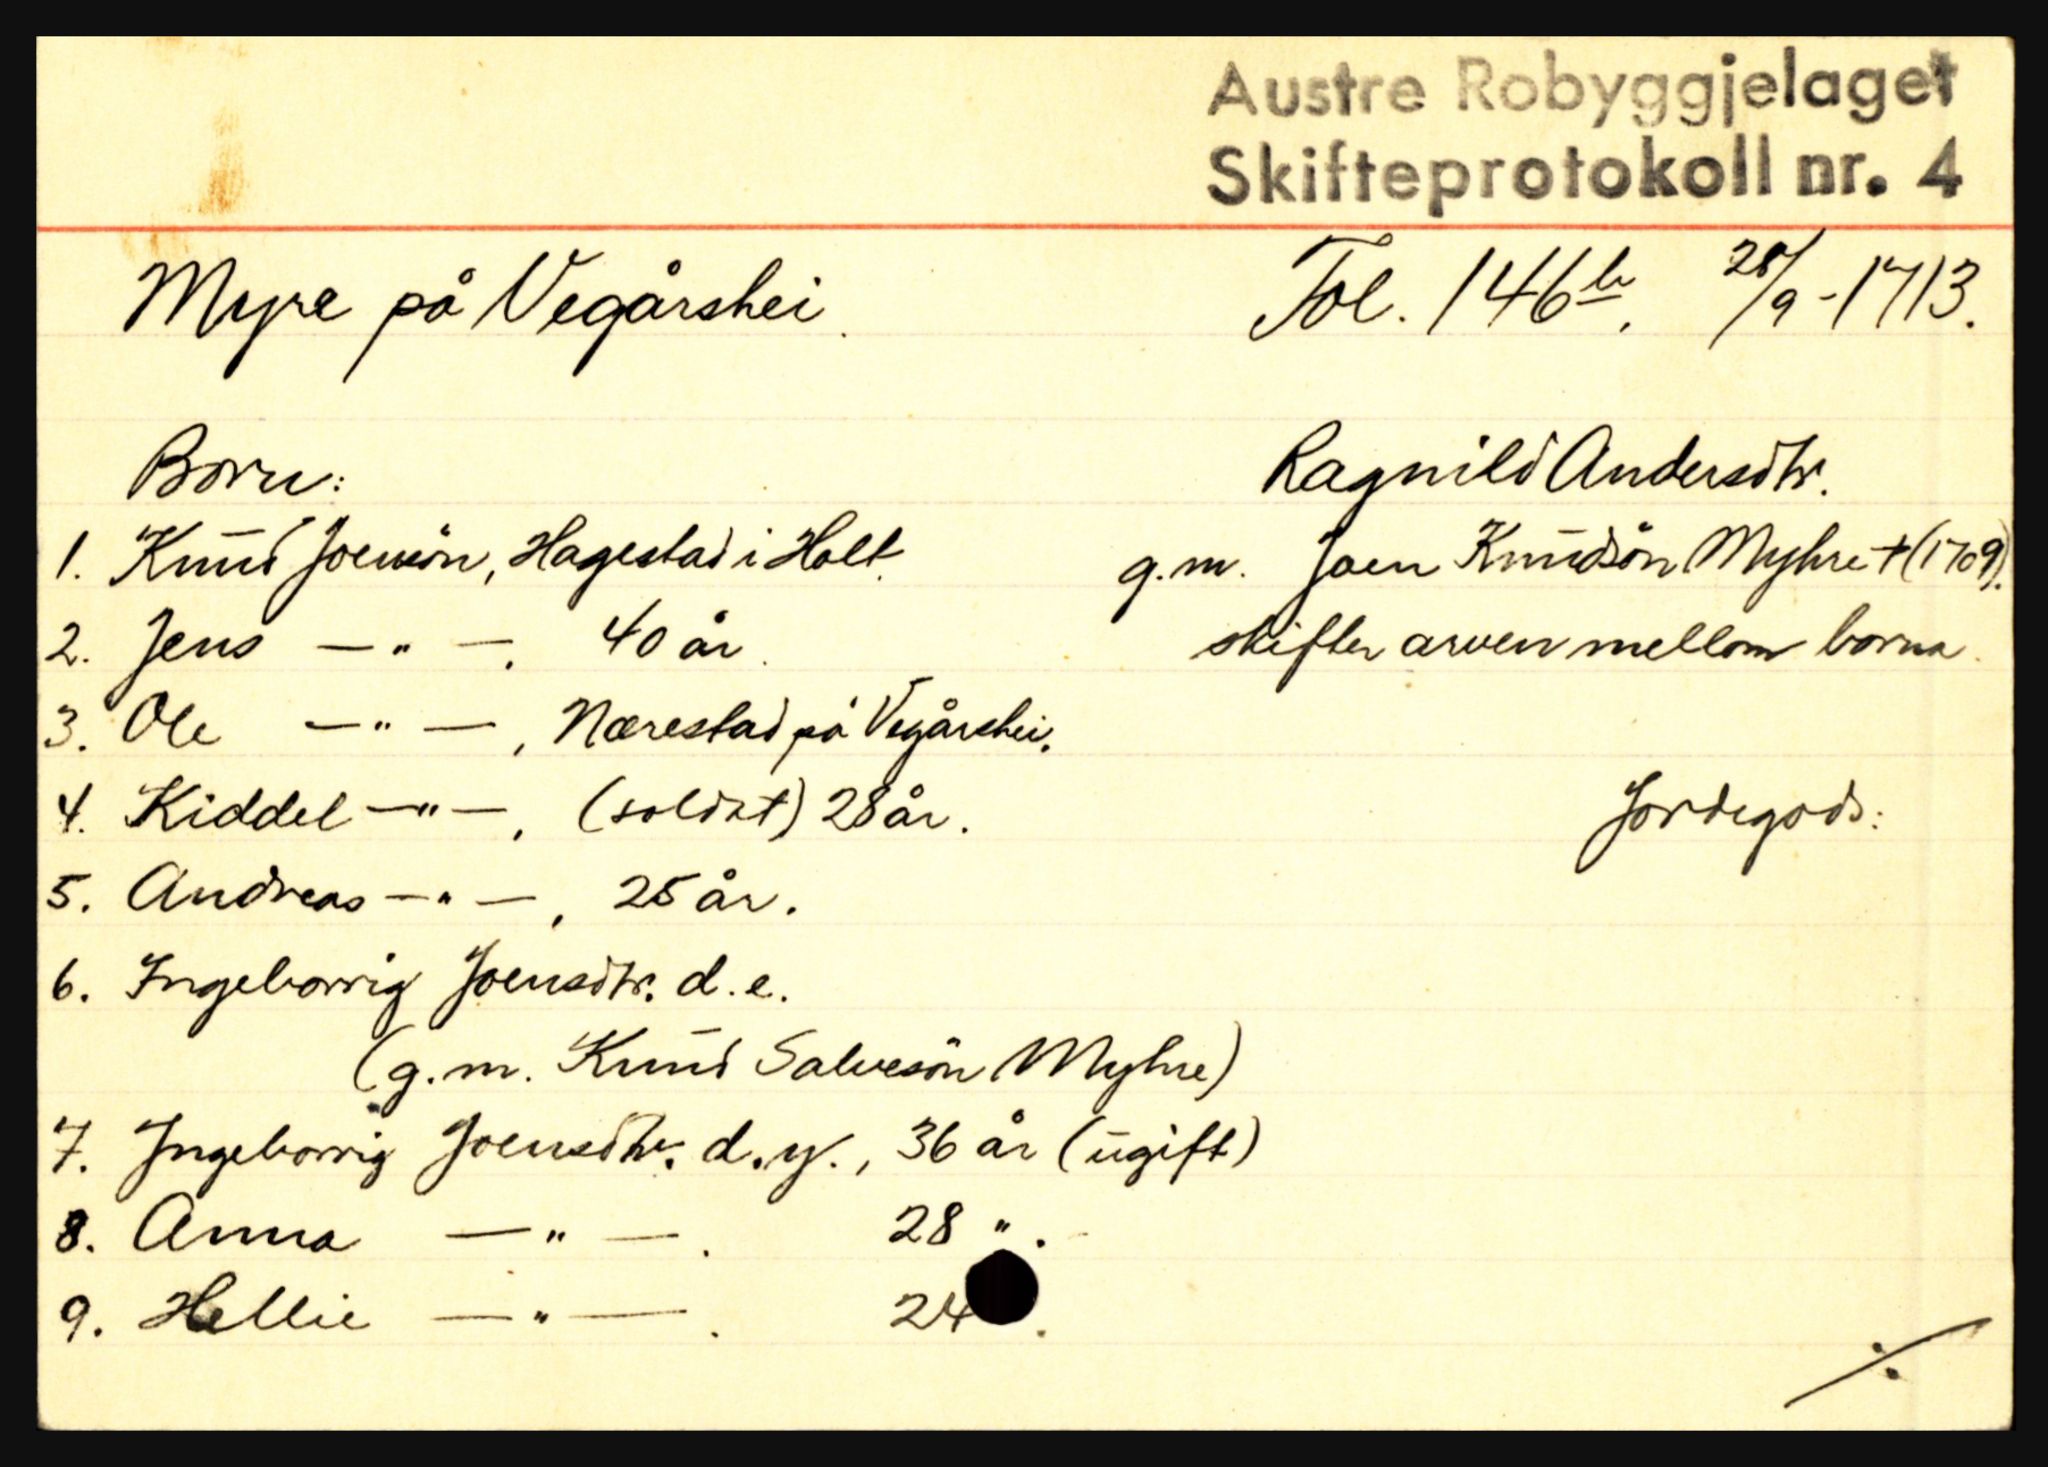 Austre Robyggjelaget
Skifteprotokoll nr. 4
Myre på Vegårshei.
Fol. 146b. 28/9-1713.
Born:
Ragnild Andersdtr.
1. Knud Joensön, Hagestad i Holt.
g.m. Joen Knudsön Myhre †(1709).
2. Jens —"—. 40 år.
skifter arven mellom borna.
3. Ole —"—, Nærestad på Vegårshei.
4. Kiddel —"—, (soldat) 28 år.
Jordegods:
5. Andreas —"—, 25 år.
6. Ingeborrig Joensdtr. d.e.
(g.m. Knud Salvesön Myhre)
7. Ingeborrig Joensdtr. d.y., 36 år (ugift)
8. Anna —"—. 28 ".
9. Hellie —"—. 24 .
./.